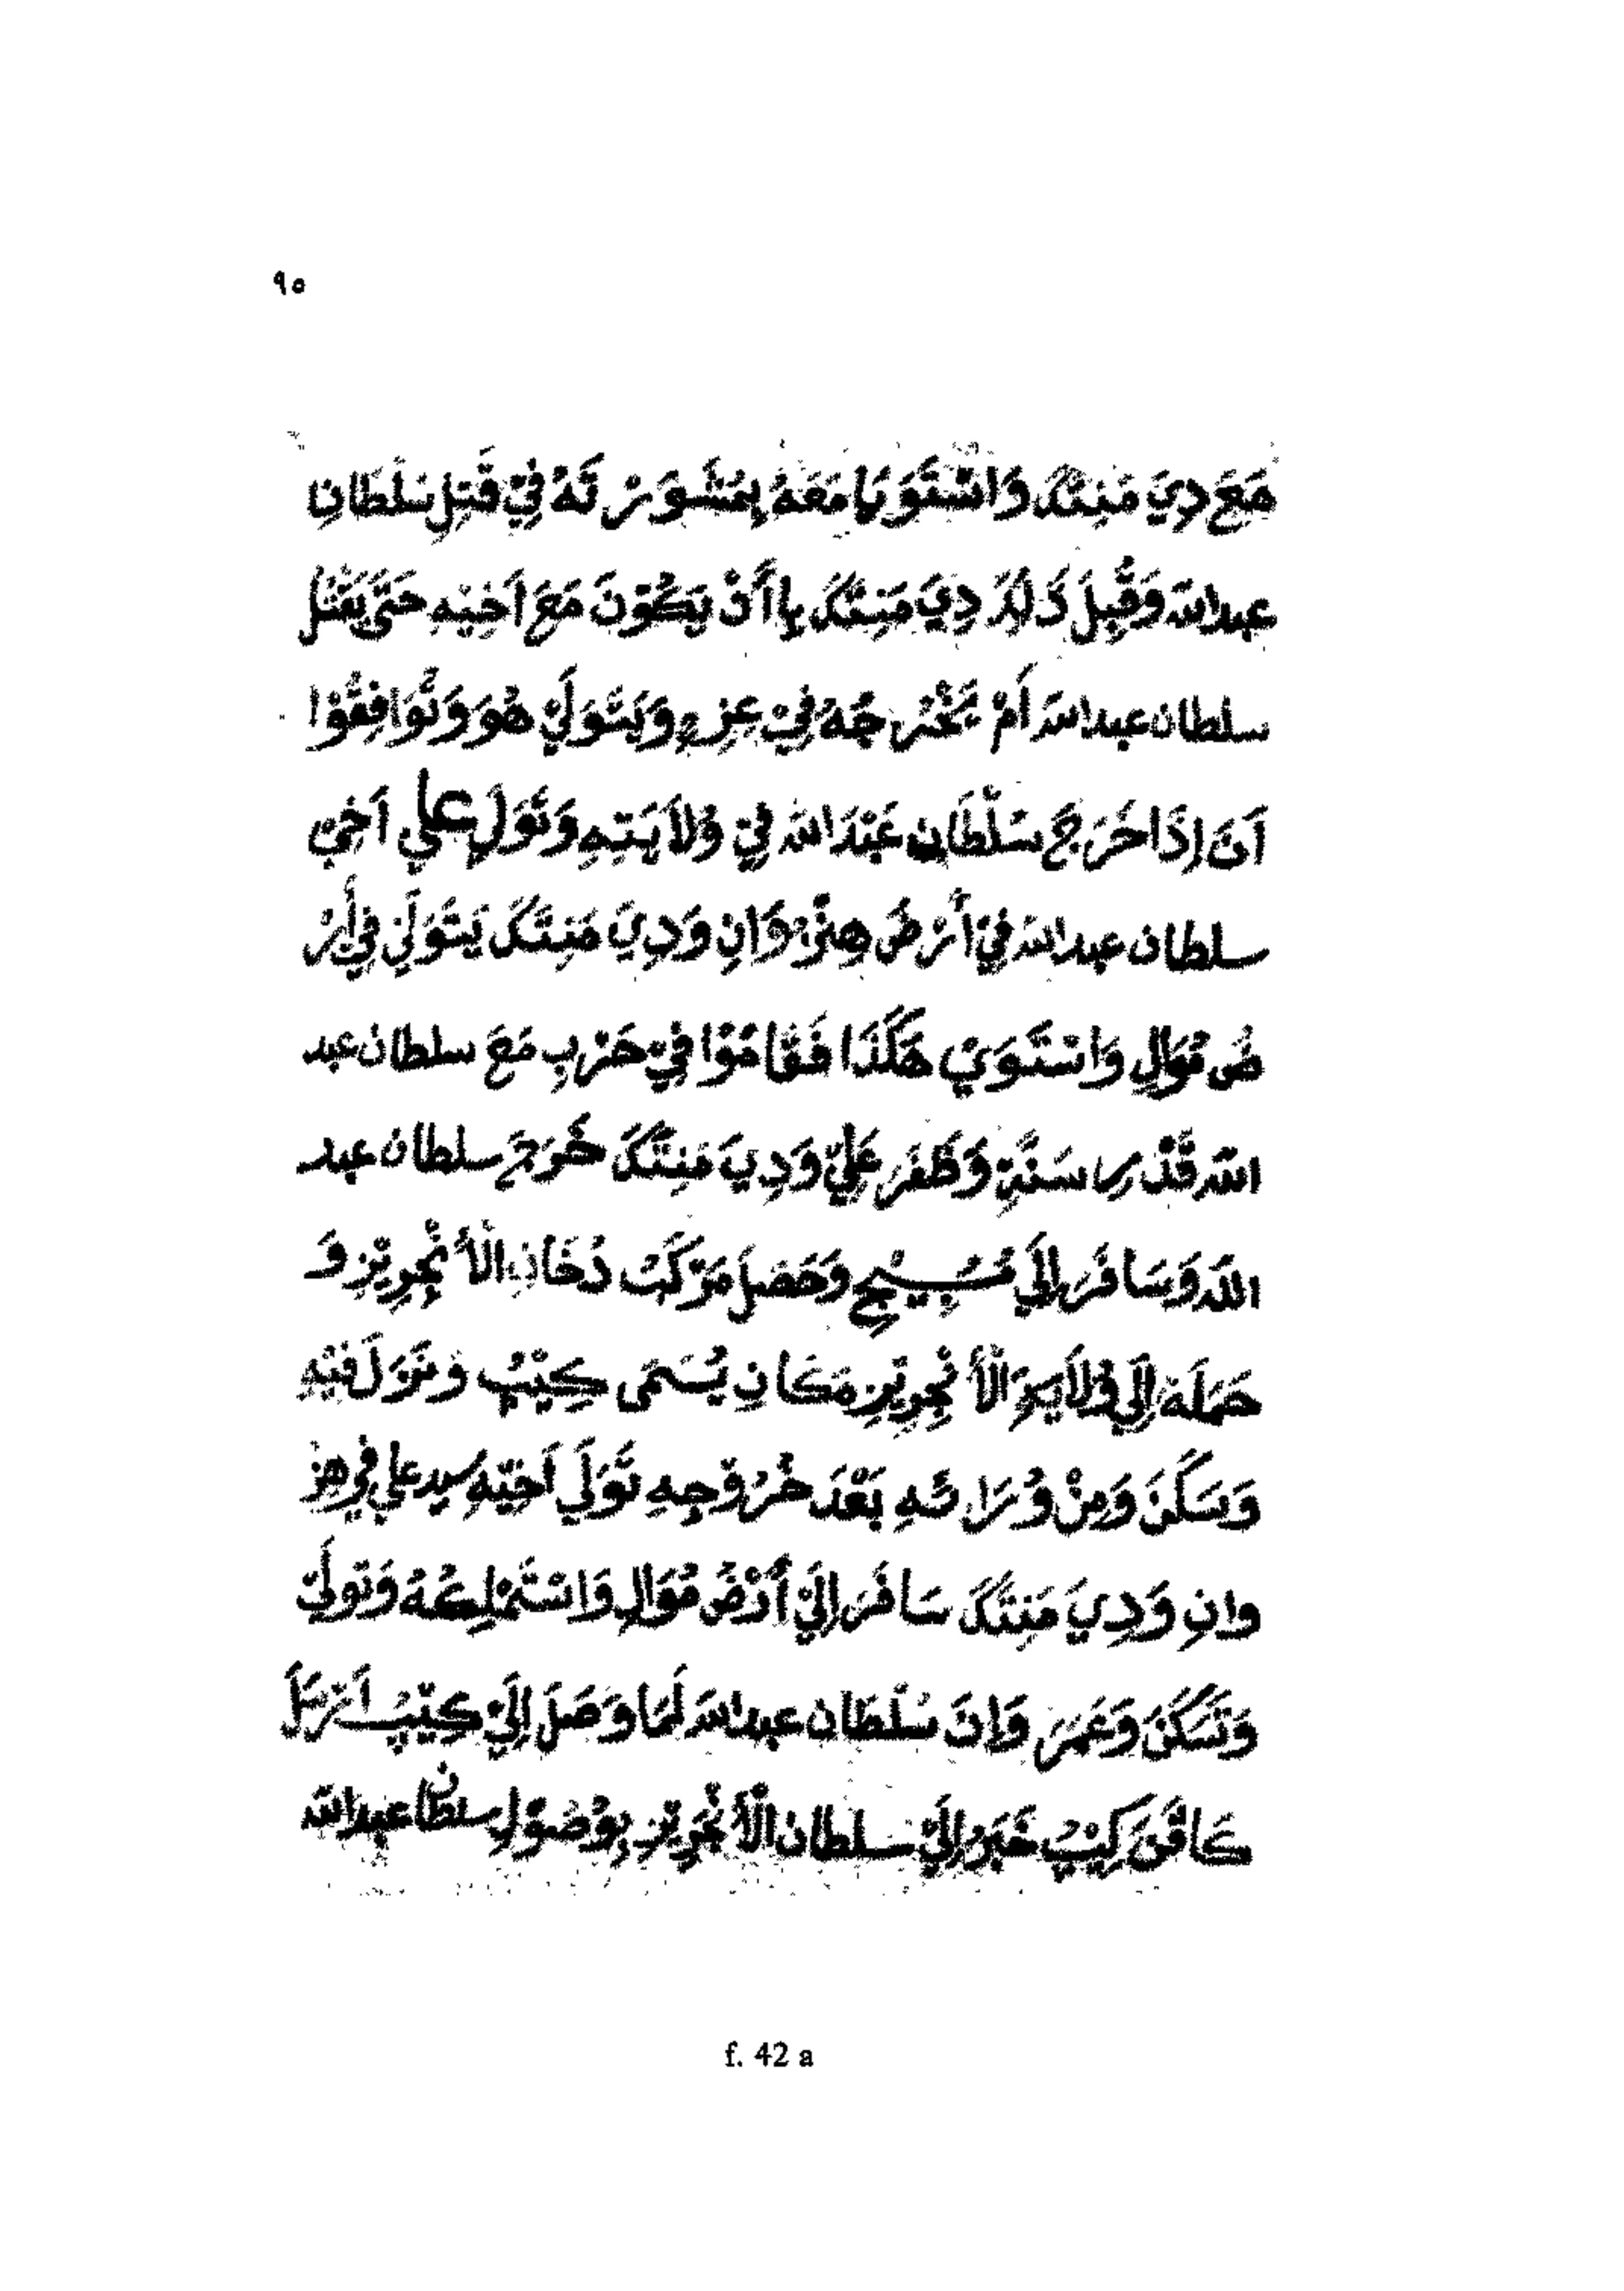 ٩٥
مَعَ دِيَ مَنِتَكَ وَاسْتَوَيَا مَعَهُ بِمَشَوَرَ لَهُ فِيْ قَتِلِ سَلْطَانِ
عبدالله وَقَبِلَ ذَلِكَ دِيَ مَنِتَكَ بِاأَنْ يَكُوْنَ مَعَ اَخِيْهِ حَتَّى يَقْتُل
سلطان عبدالله اَمْ يَخْرُجُهُ فِيْ عِزِهِ وَيَتَوَلَّيْ هُوَ وَتُوَافِقُوْا
اَنَ إِذَا خَرَجَ سَلْطَان عَبْدَالله فِيْ وُلاَيَتِهِ وَتَوَلَ علي اَخِيْ
سلطان عبدالله فِيْ اَرْضَ هِنْزُوَانِ وَدِيَ مَنِتَكَ يَتَوَلَيْ فِيْ أَرْ
ضُ مُوَالِ وَاسْتَوَيْ هَكَذَا فَقَامُوْا فِيْ حَرْبِ مَعَ سلطان عبد
الله قَدْرِ سَنَةٍ وَظَفَرَ عَلِيْ وَدِيَ مَنِتَكَ خَرَجَ سلطان عبد
الله وَسَافَرَ إِلَيْ مُسَبِيْجِ وَحَصَلَ مَرْكَبُ دُخَانِ الْأَنْجِرِيْزِ وَ
حَمَلَهُ إِلَيْ وُلاَيَةِ الْأَنْجِرِيْزِ مَكَانِ يُسَمَى كِيْبُ وَنَزَلَ فِيْهِ
وَسَكَنَ وَمِنْ وُرَائهِ بَعْدَ خُرُوْجِهِ تَوَلَّي اَخِيْهِ سيد علي في هنز
وانِ وَدِيَ مَنِتَكَ سَافَرَ إِلَيْ أَرْضُ مُوَالِ وَاسْتَمْلِكُهُ وَتَوَلَّيْ
وَتَسَكَنَ وَعَمَرَ وَاِنَ سُلْطَان عبدالله لَمَا وَصَلَ إِلَيْ كِيْبُ اَرْسَلَ
كَافِنَ كِيْبُ خَبَرُ إِلَيْ سلطان الْأَنْجَرِيْزِ بِوُصُوْلِ سلطان عبدالله
f. 42 a